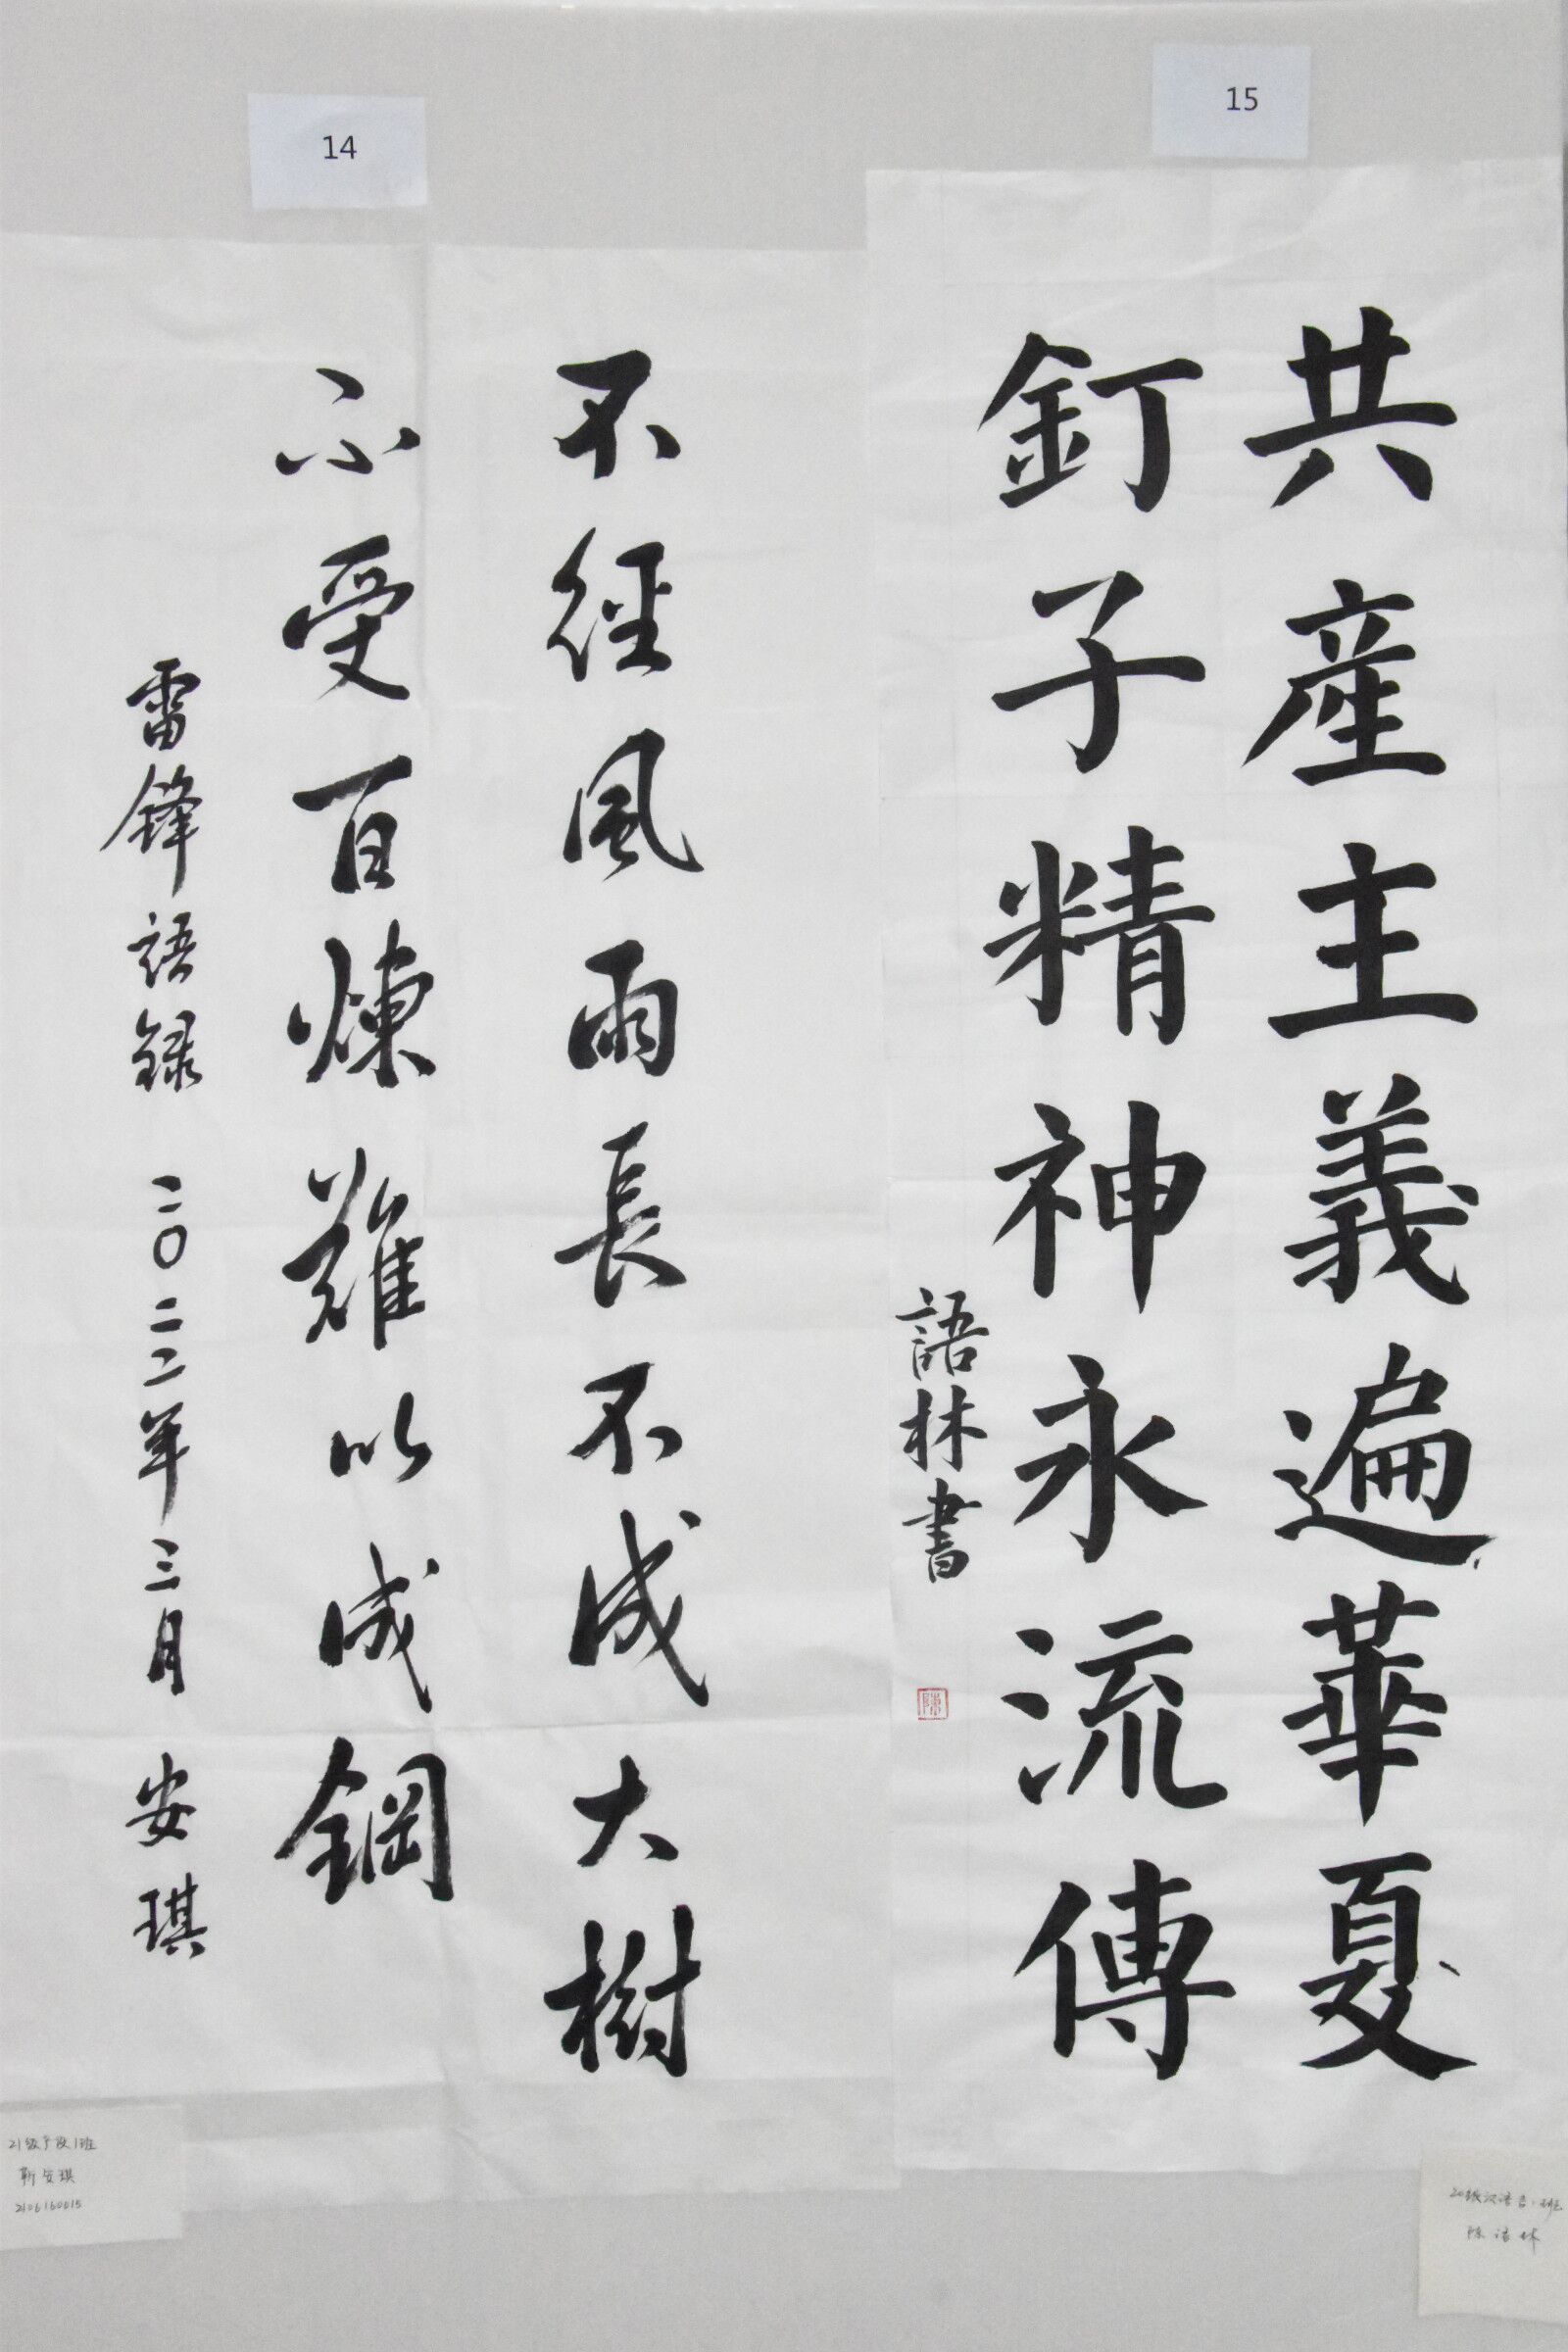 15
共產主義遍華夏
釘子精神永流傳
語林書
陳
14
不經風雨長不成大樹
不受百煉難以成鋼
雷鋒語録 二〇二二年三月 安琪
21级学设1班
靳安琪
2106160015
陈语林